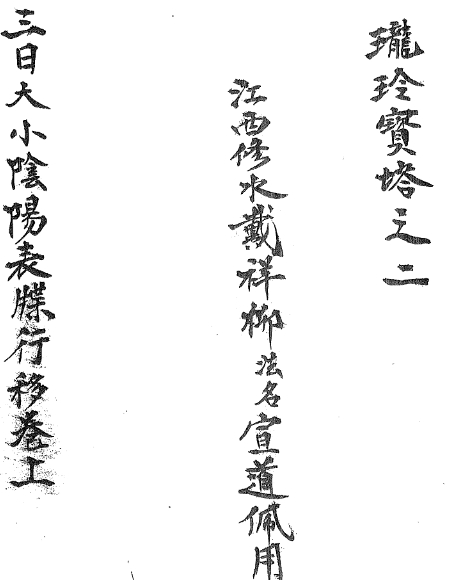 瓏玲寶塔之二
江西修水戴祥柳法名宣道佩用
三日大小陰陽表牒行移卷上